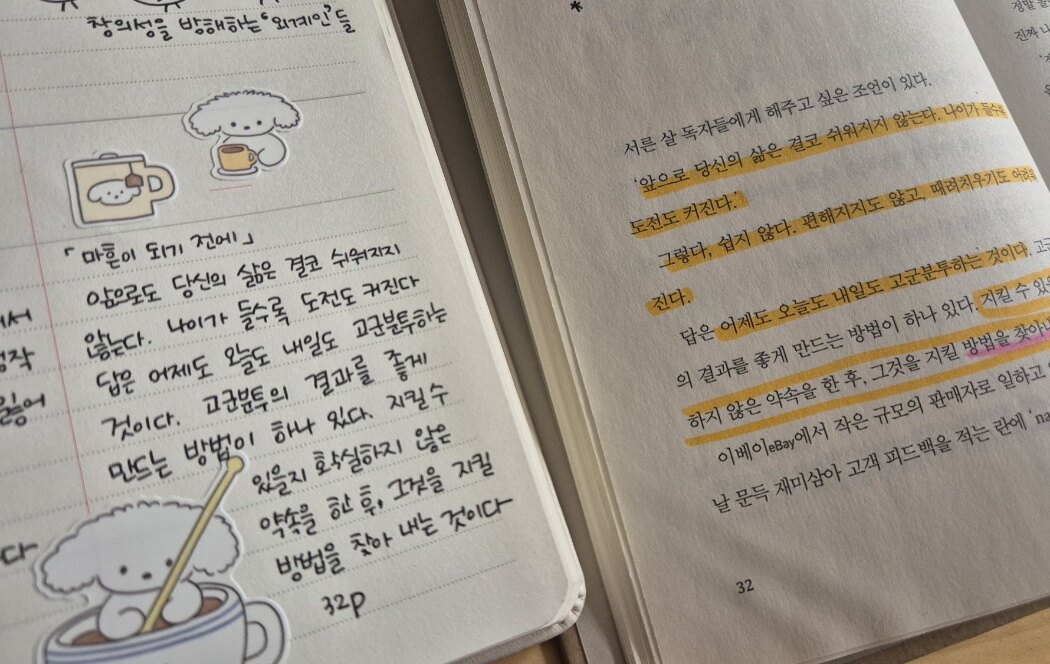 창의성을 방해하는 '외계인'들
「마흔이 되기 전에」
앞으로도 당신의 삶은 결코 쉬워지지
않는다. 나이가 들수록 도전도 커진다
답은 어제도 오늘도 내일도 고군분투하는
것이다. 고군분투의 결과를 좋게
만드는 방법이 하나 있다. 지킬 수
있을지 확실하지 않은
약속을 한 후, 그것을 지킬
방법을 찾아 내는 것이다
32p
*
서른 살 독자들에게 해주고 싶은 조언이 있다.
'앞으로 당신의 삶은 결코 쉬워지지 않는다. 나이가 들수록
도전도 커진다.'
그렇다, 쉽지 않다. 편해지지도 않고, 때려치우기도
진다.
답은 어제도 오늘도 내일도 고군분투하는 것이다.
의 결과를 좋게 만드는 방법이 하나 있다. 지킬 수
하지 않은 약속을 한 후, 그것을 지킬 방법을
이베이eBay에서 작은 규모의 판매자로 일하고
날 문득 재미삼아 고객 피드백을 적는 란에
32